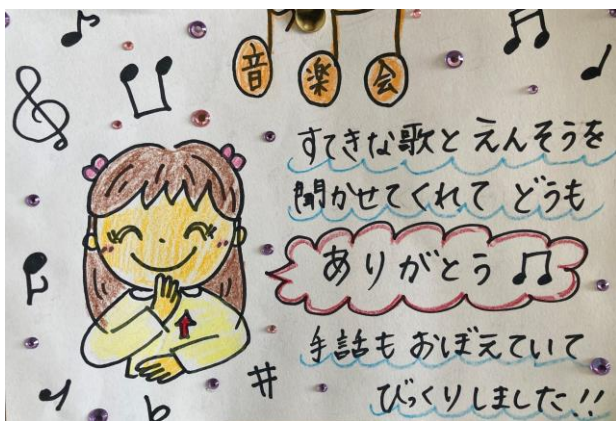 音楽会
すてきな歌と えんそうを
聞かせてくれて どうも
ありがとう
手話も おぼえていて
びっくりしました!!